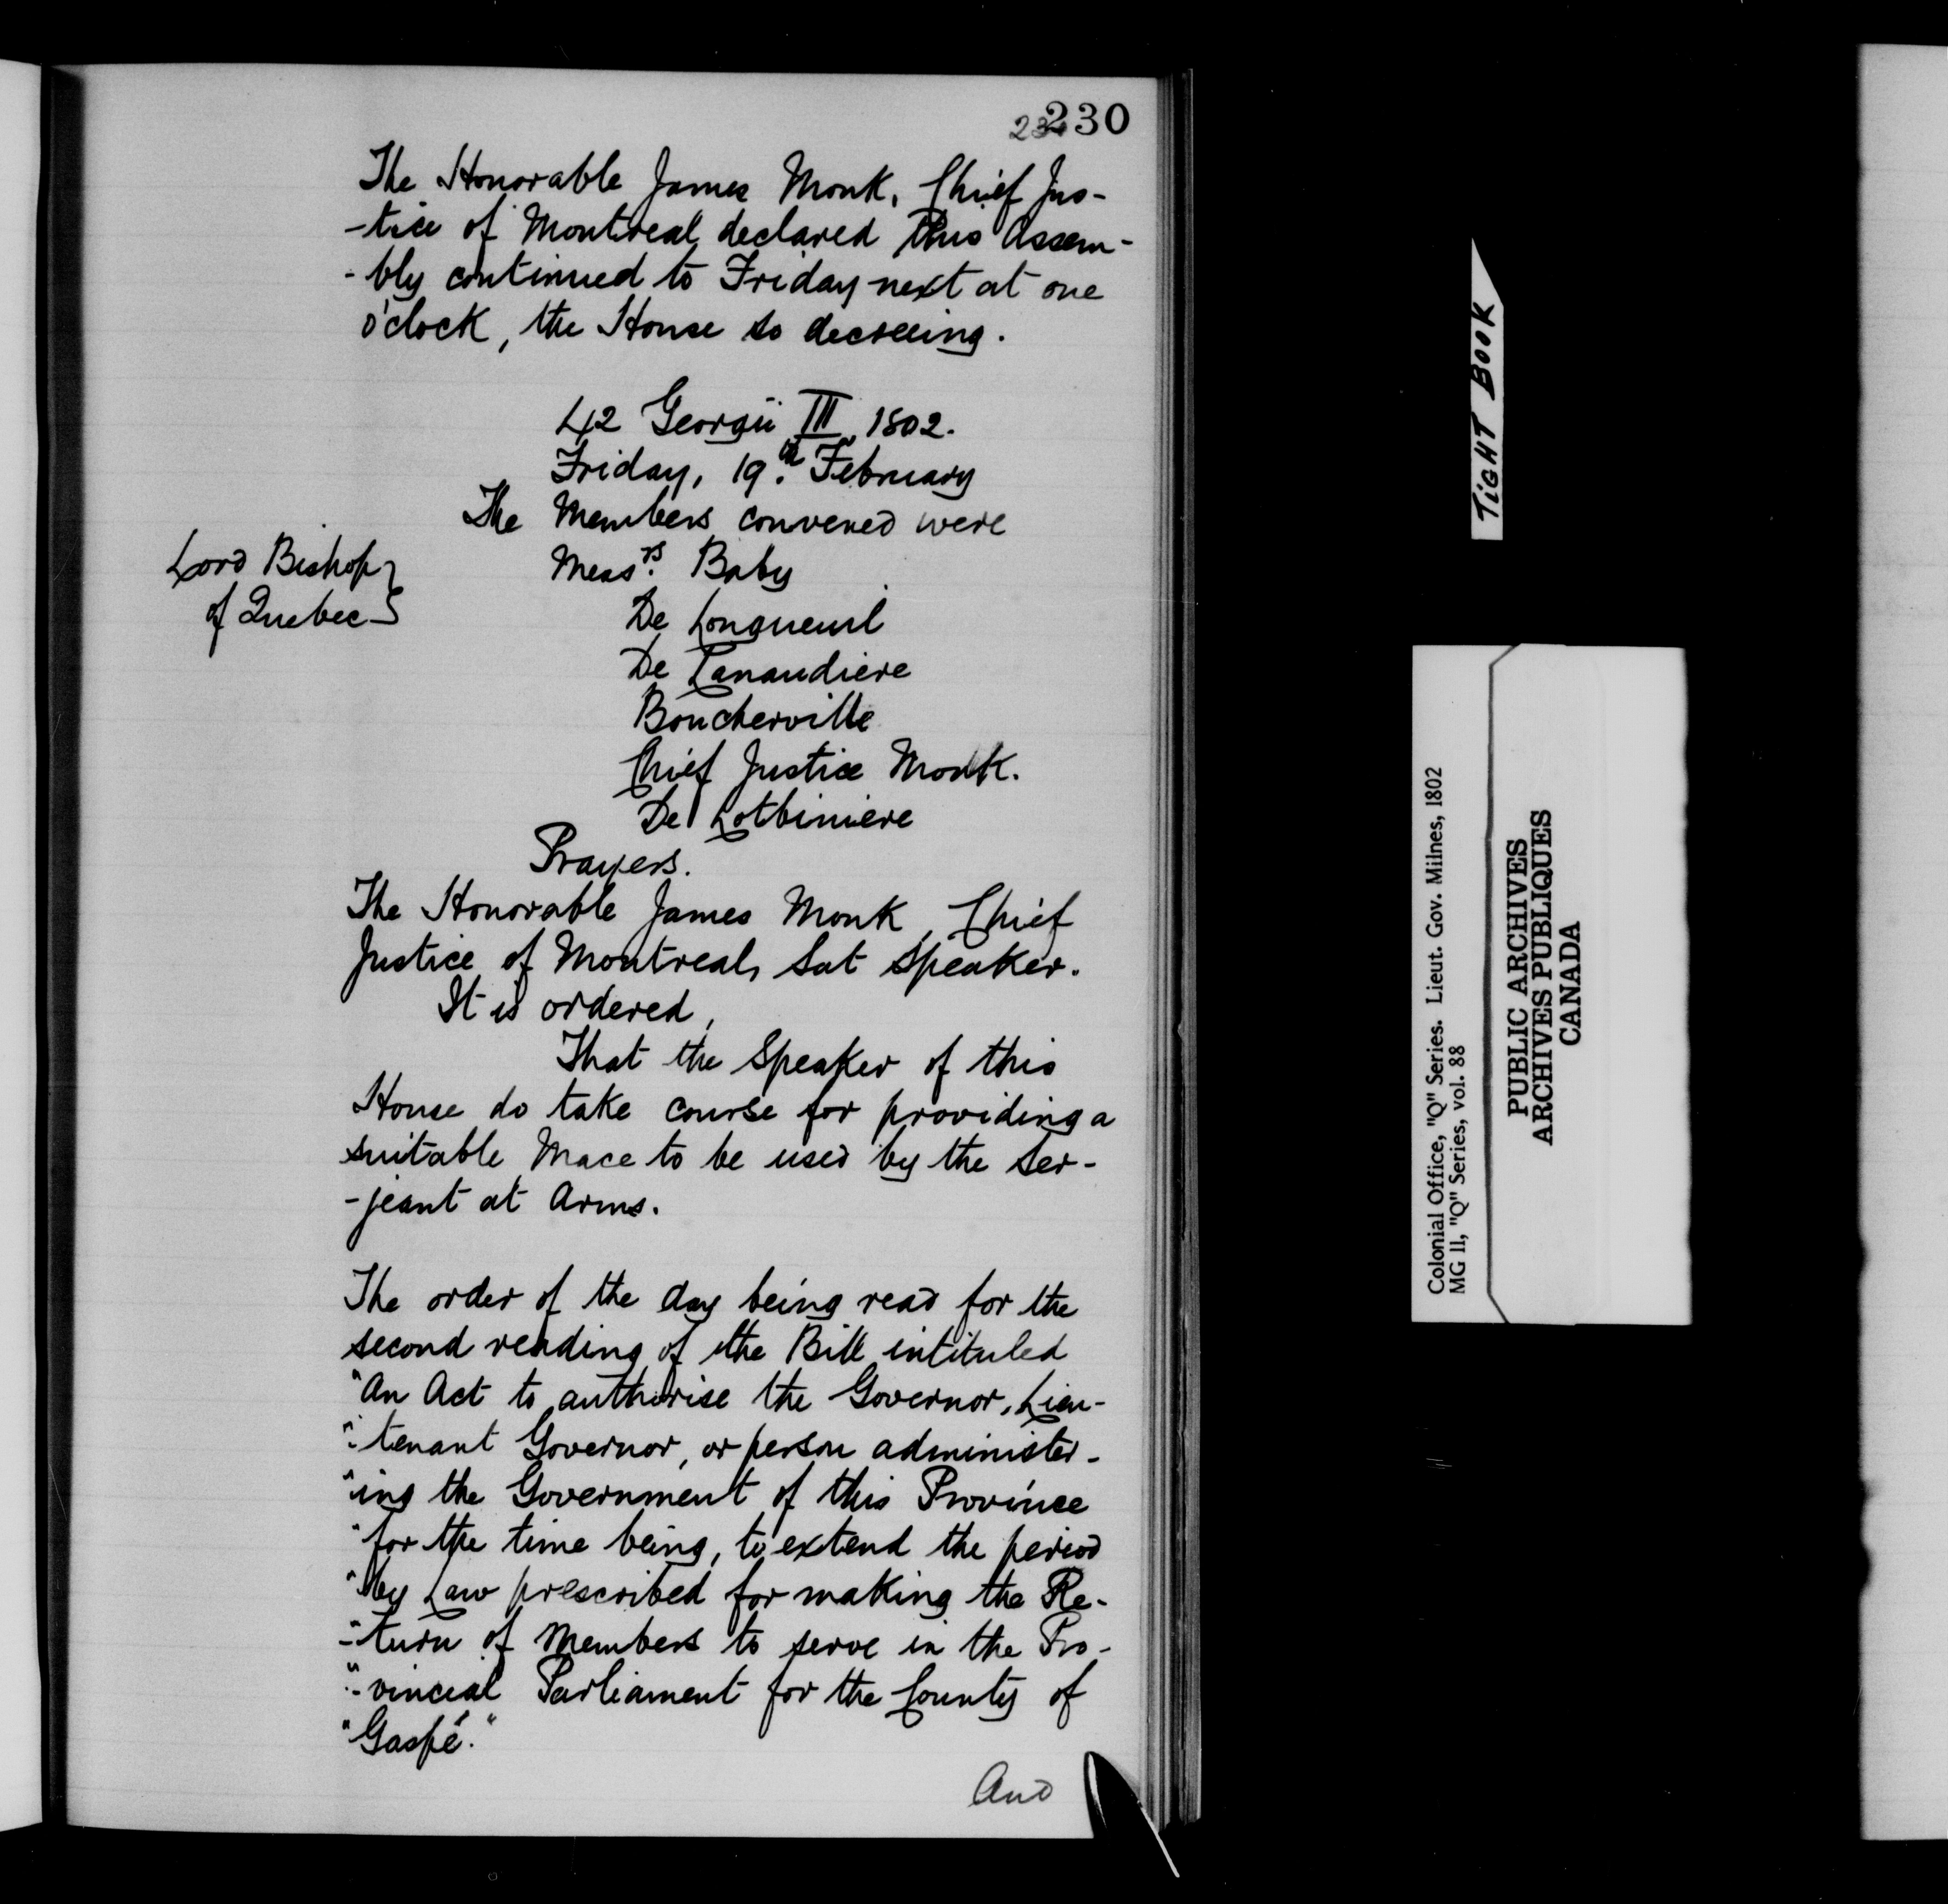 230
The Honorable James Monk, Chief Jus-
-tice of Montreal declared this Assem-
-bly continued to Friday next at one
o'clock, the House so decreeing.
42 Georgii III, 1802.
Friday, 19.th February
The Members convened were
Lord Bishop
of Quebec
Mess.rs Baby
De Longueuil
De Lanaudiere
Boucherville
Chief Justice Monk.
De Lotbiniere
Prayers.
The Honorable James Monk, Chief
Justice of Montreal, Sat Speaker.
It is ordered,
That the Speaker of this
House do take course for providing a
suitable Mace to be used by the Ser-
-jeant at Arms.
The order of the day being read for the
second reading of the Bill intituled
"An Act to authorise the Governor, Lieu-
"-tenant Governor, or person administer-
"ing the Government of this Province
"for the time being, to extend the period
"by Law prescribed for making the Re-
"-turn of Members to serve in the Pro-
"-vincial Parliament for the County of
"Gaspé."
And
TIGHT BOOK
Colonial Office, "Q" Series. Lieut. Gov. Milnes, 1802
MG 11, "Q" Series, vol. 88
PUBLIC ARCHIVES
ARCHIVES PUBLIQUES
CANADA